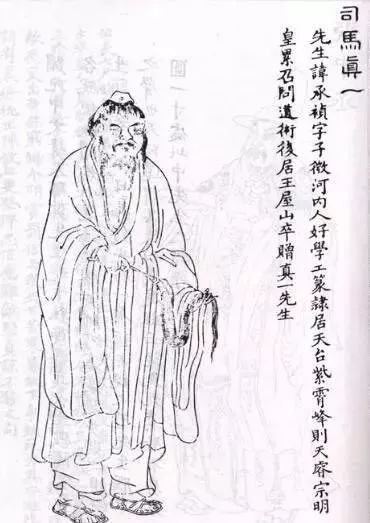 司馬眞一
先生諱承禎字子微河內人好學工篆隸居天台紫霄峰則天睿宗明
皇累召問道術後居王屋山卒贈真一先生